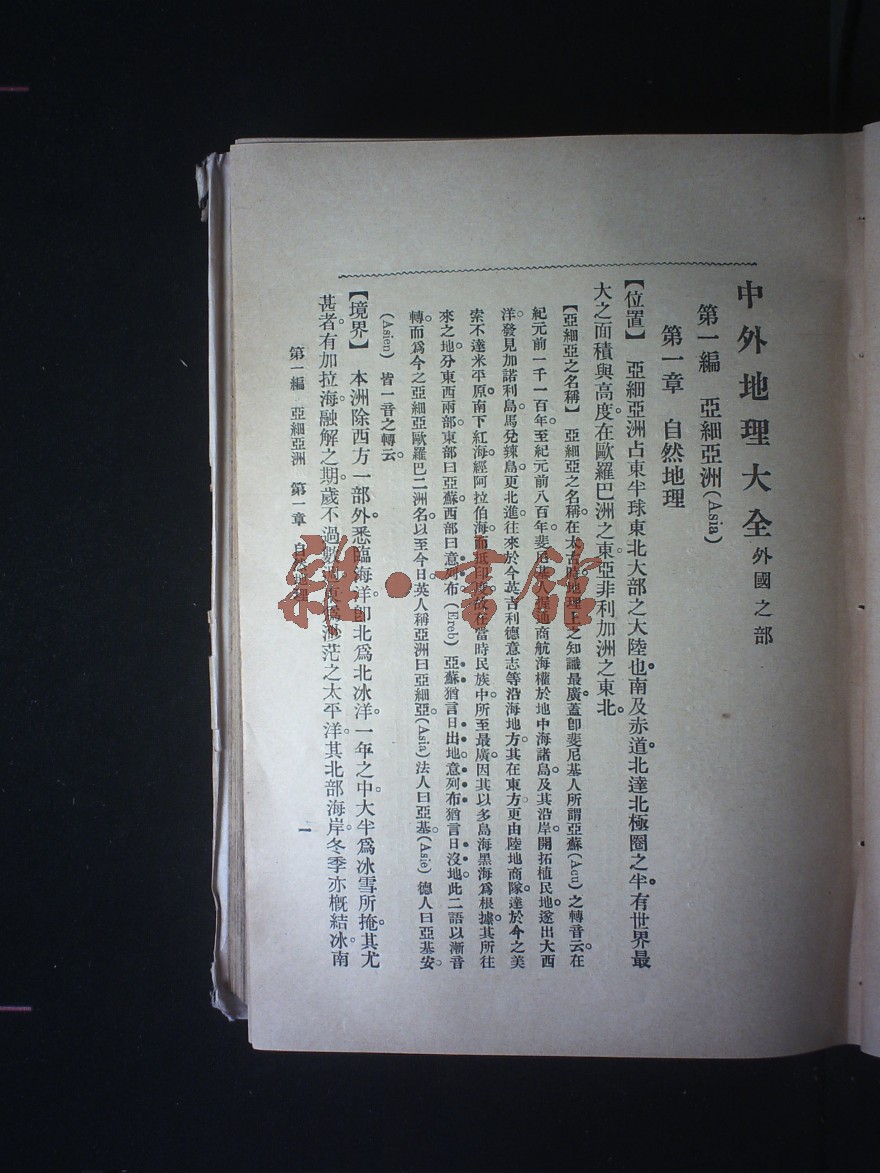 中外地理大全 外國之部
第一編　亞細亞洲 (Asia)
第一章　自然地理
【位置】　亞細亞洲占東半球東北大部之大陸也。南及赤道。北達北極圈之半。有世界最
大之面積與高度。在歐羅巴洲之東。亞非利加洲之東北。
【亞細亞之名稱】　亞細亞之名稱。在太古時地理上之知識最廣。蓋卽斐尼基人所謂亞蘇 (Acu) 之轉音云。在
紀元前一千一百年。至紀元前八百年。斐尼基人通商航海權於地中海諸島。及其沿岸。開拓植民地。遂出大西
洋。發見加諾利島。馬兌辣島。更北進。往來於今英吉利德意志等沿海地方。其在東方。更由陸地商隊。達於今之美
索不達米平原。南下紅海。經阿拉伯海。而抵印度。故在當時民族中。所至最廣。因其以多島海黑海爲根據。其所往
來之地。分東西兩部。東部曰亞蘇。西部曰意列布 (Ereb) 亞蘇猶言日出地。意列布猶言日沒地。此二語以漸音
轉而爲今之亞細亞歐羅巴二洲名。以至今日。英人稱亞洲曰亞細亞 (Asia) 法人曰亞基 (Asie) 德人曰亞基安
(Asien)　皆一音之轉云。
【境界】　本洲除西方一部外。悉臨海洋。卽北爲北冰洋。一年之中。大半爲冰雪所掩。其尤
甚者。有加拉海。融解之期。歲不過數週。東爲淼茫之太平洋。其北部海岸。冬季亦概結冰。南
第一編　亞細亞洲　第一章　自然地理
一
雜·書館